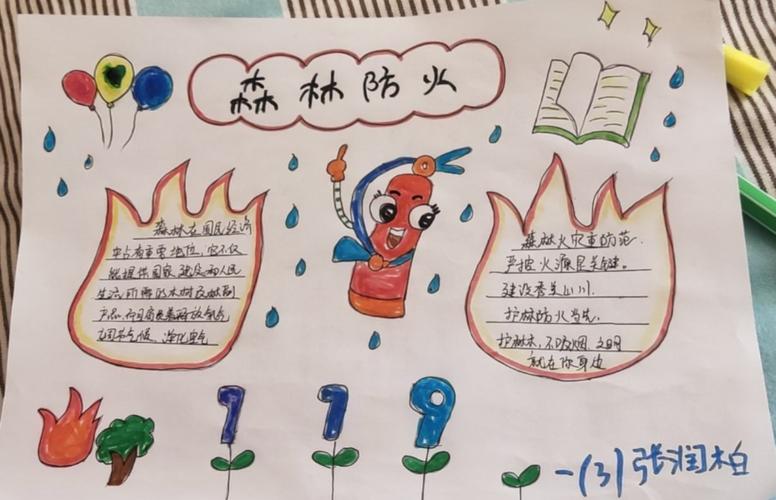 森林防火
森林在国民经济
中占有重要地位,它不仅
能提供国家建设和人民
生活所需的木材及林副
产品,而且肩负着释放氧气
调节气候、净化空气
森林火灾重防范.
严控火源是关键。
建设秀美山川.
护林防火当先.
护林木,不吸烟,文明
就在你身边
119
一(3)张润柏